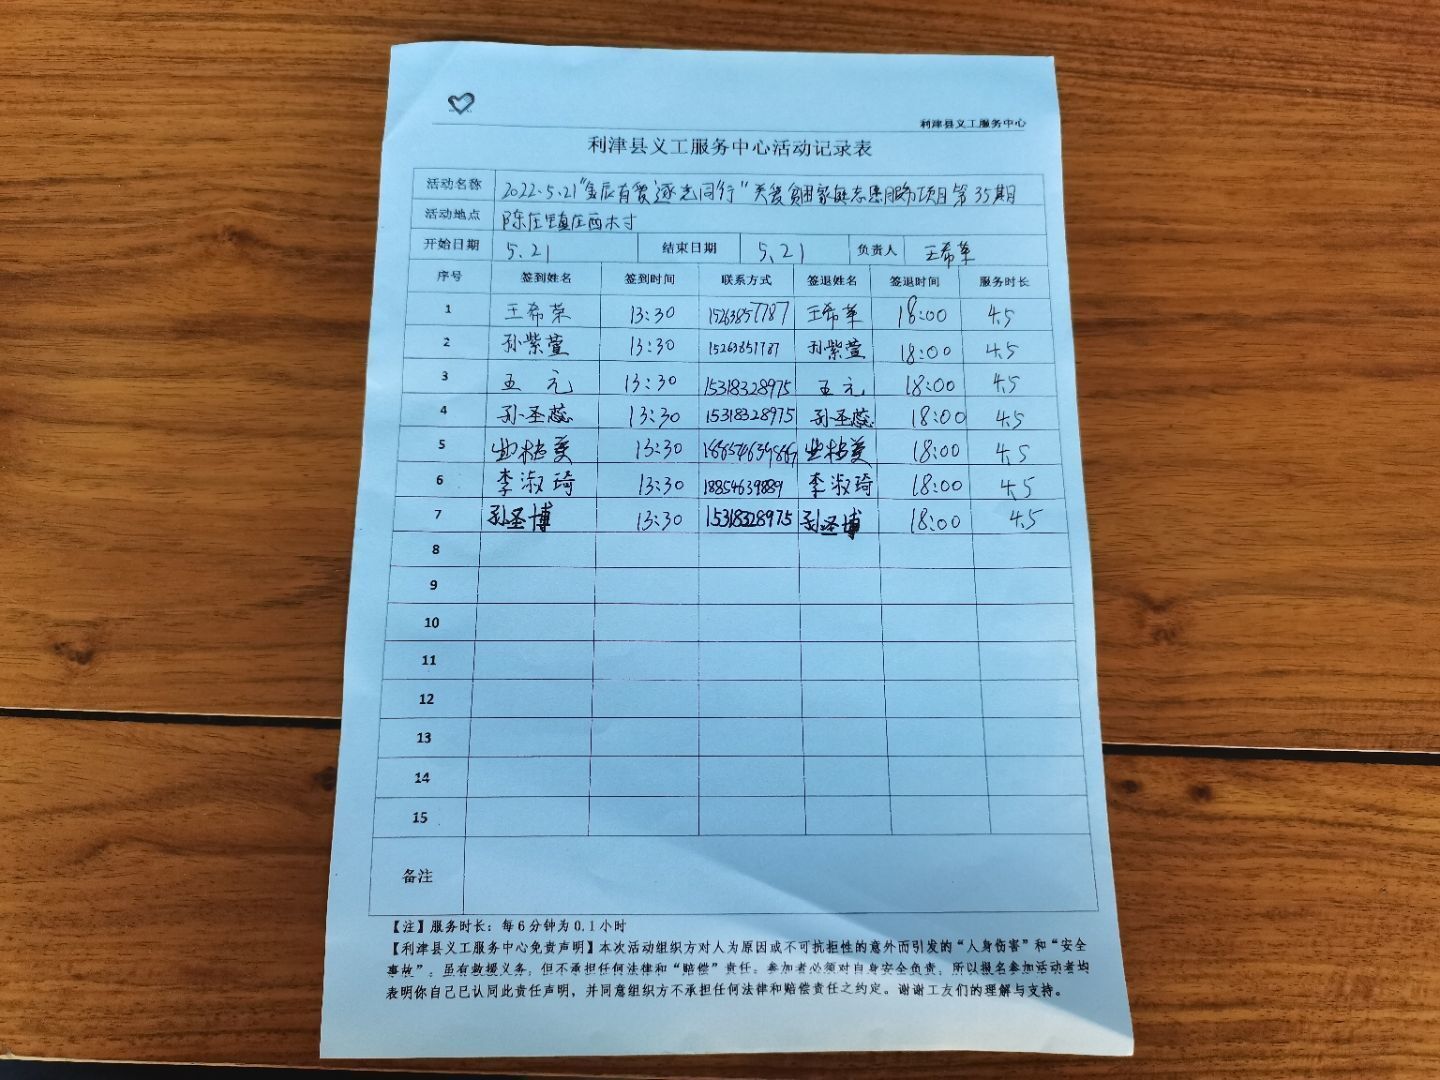 利津县义工服务中心
利津县义工服务中心活动记录表
活动名称 2022.5.21“金辰有爱逐志同行”关爱贫困家庭志愿服务项目第35期
活动地点 陈庄镇庄西木寸
开始日期 5.21 结束日期 5.21 负责人 王希荣
序号 签到姓名 签到时间 联系方式 签退姓名 签退时间 服务时长
1 王希荣 13:30 15263857787 王希荣 18:00 4.5
2 孙紫萱 13:30 孙紫萱 18:00 4.5
3 王元 13:30 15318328975 王元 18:00 4.5
4 孙圣蕊 13:30 15318328975 孙圣蕊 18:00 4.5
5 13:30 18:00 4.5
6 李淑琦 13:30 18854639889 李淑琦 18:00 4.5
7 孙圣博 13:30 15318328975 孙圣博 18:00 4.5
8
9
10
11
12
13
14
15
备注
【注】服务时长：每6分钟为0.1小时
【利津县义工服务中心免责声明】本次活动组织方对人为原因或不可抗拒性的意外而引发的“人身伤害”和“安全
事故”，虽有救援义务，但不承担任何法律和“赔偿”责任。参加者必须对自身安全负责，所以报名参加活动者均
表明你自己已认同此责任声明，并同意组织方不承担任何法律和赔偿责任之约定。谢谢工友们的理解与支持。